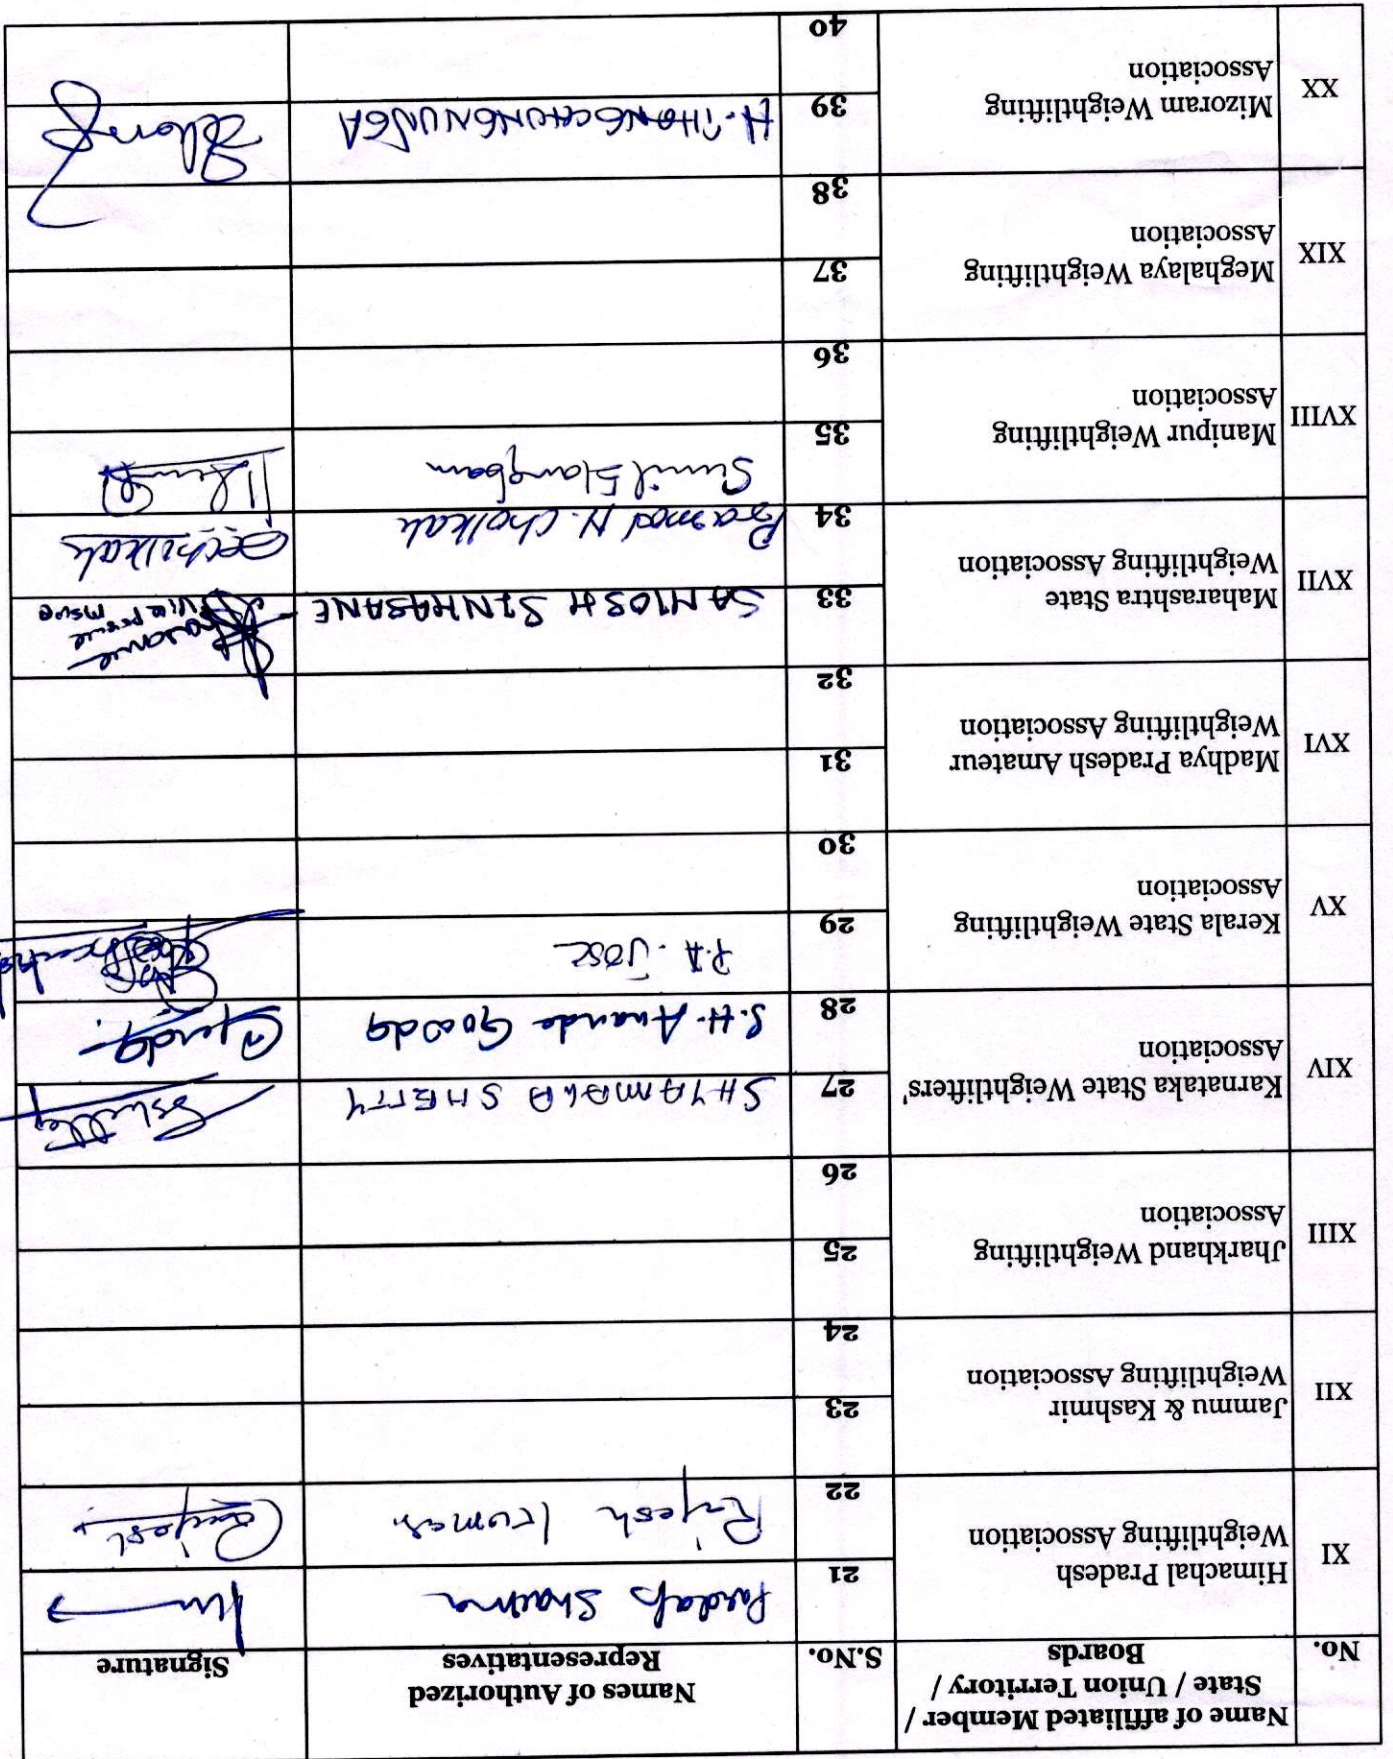 No.
Name of affiliated Member /
State / Union Territory /
Boards
S.No.
Names of Authorized
Representatives
Signature
XI
Himachal Pradesh
Weightlifting Association
21
Sharma
22
Rajesh Kumar
XII
Jammu & Kashmir
Weightlifting Association
23
24
XIII
Jharkhand Weightlifting
Association
25
26
XIV
Karnataka State Weightlifters'
Association
27
SHYAMALA SHETTY
28
S.H. Ananda Gowda
XV
Kerala State Weightlifting
Association
29
P.A. JOSE
30
XVI
Madhya Pradesh Amateur
Weightlifting Association
31
32
XVII
Maharashtra State
Weightlifting Association
33
SANTOSH SINHASANE
34
Pramod H. Cholkar
Cholkar
XVIII
Manipur Weightlifting
Association
35
Sunil Elangbam
36
XIX
Meghalaya Weightlifting
Association
37
38
XX
Mizoram Weightlifting
Association
39
H. THANGCHUNGNUNGA
40